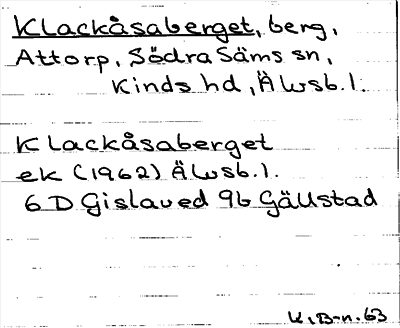 Klackåsaberget, berg,
Attorp, Södra Säms sn,
Kinds hd, Älvsb. l.
Klackåsaberget
ek (1962) Älvsb. l.
6D Gislaved 9b Gällstad
K, B-n. 63